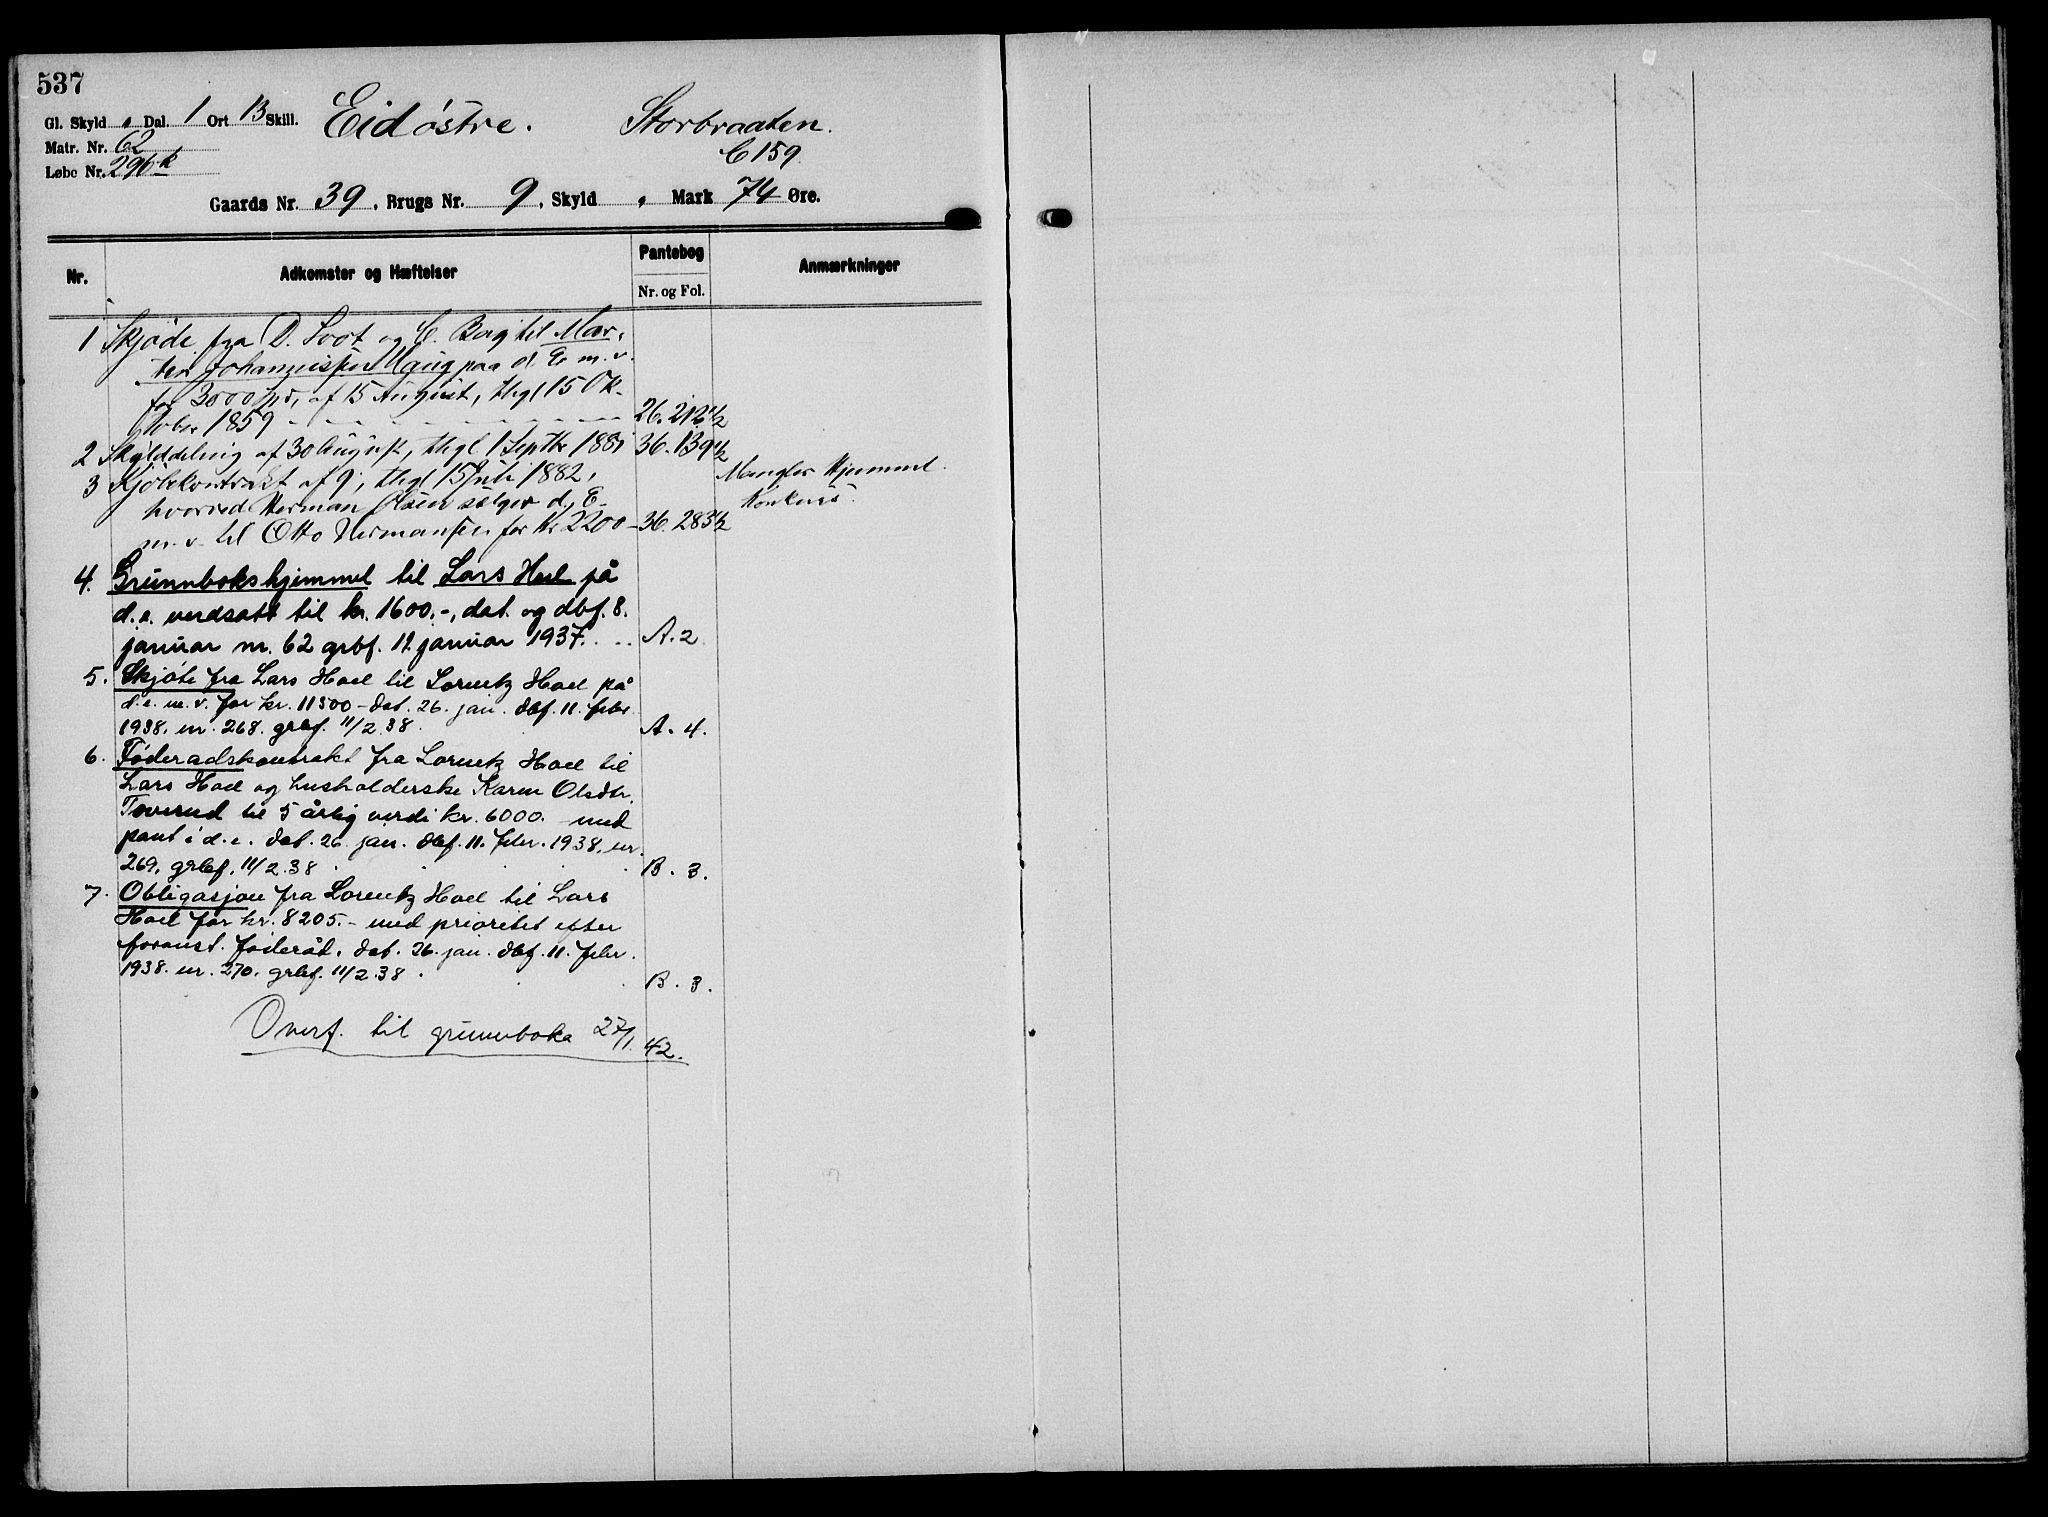 537
Gl. Skyld „ Dal. 1 Ort 13 Skill. Eid østre. Storbraaten.
Matr. Nr. 62
C 159
Løbe Nr. 296 k
Gaards Nr. 39, Brugs Nr. 9, Skyld „ Mark 74 Øre.
Nr. Adkomster og Hæftelser Pantebog Nr. og Fol. Anmærkninger
1 Skjøde fra D. Soot og C. Borg til Mar-
ten Johannessen Haug paa d. E. m. v.
for 3000 Spd, af 15 August, thgl 15 Ok-
tober 1859 - - - 26. 212 1/2
2 Skylddeling af 30 August, thgl 1 Septbr 1881 36. 139 1/2
3 Kjøbekontrakt af 9, thgl 15 Juli 1882, Mangler Hjemmel.
hvorved Herman Olsen sælger d. E. Konkurs.
m. v. til Otto Hermansen for Kr 2200 - 36. 283 1/2
4. Grunnbokshjemmel til Lars Hoel på
d. e. verdsatt til kr. 1600.-, dat. og dbf. 8.
januar nr. 62 grbf. 11. januar 1937. . . A. 2.
5. Skjøte fra Lars Hoel til Lorentz Hoel på
d. e. m. v. for kr. 11500 - dat. 26. jan. dbf. 11. febr.
1938. nr. 268. grbf. 11/2.38. A. 4.
6. Föderadskontrakt fra Lorentz Hoel til
Lars Hoel og husholderske Karen Olsdtr.
Toverud til 5 årlig verdi kr. 6000. - med
pant i d. e. dat. 26. jan. dbf. 11. febr. 1938. nr.
269. grbf. 11/2.38 . . . B. 3.
7. Obligasjon fra Lorentz Hoel til Lars
Hoel for kr. 8205.- med prioritet efter
foranst. föderåd. dat. 26. jan. dbf. 11. febr.
1938. nr. 270. grbf. 11/2.38. . . B. 3.
Overf. til grunnboka 27/1. 42.